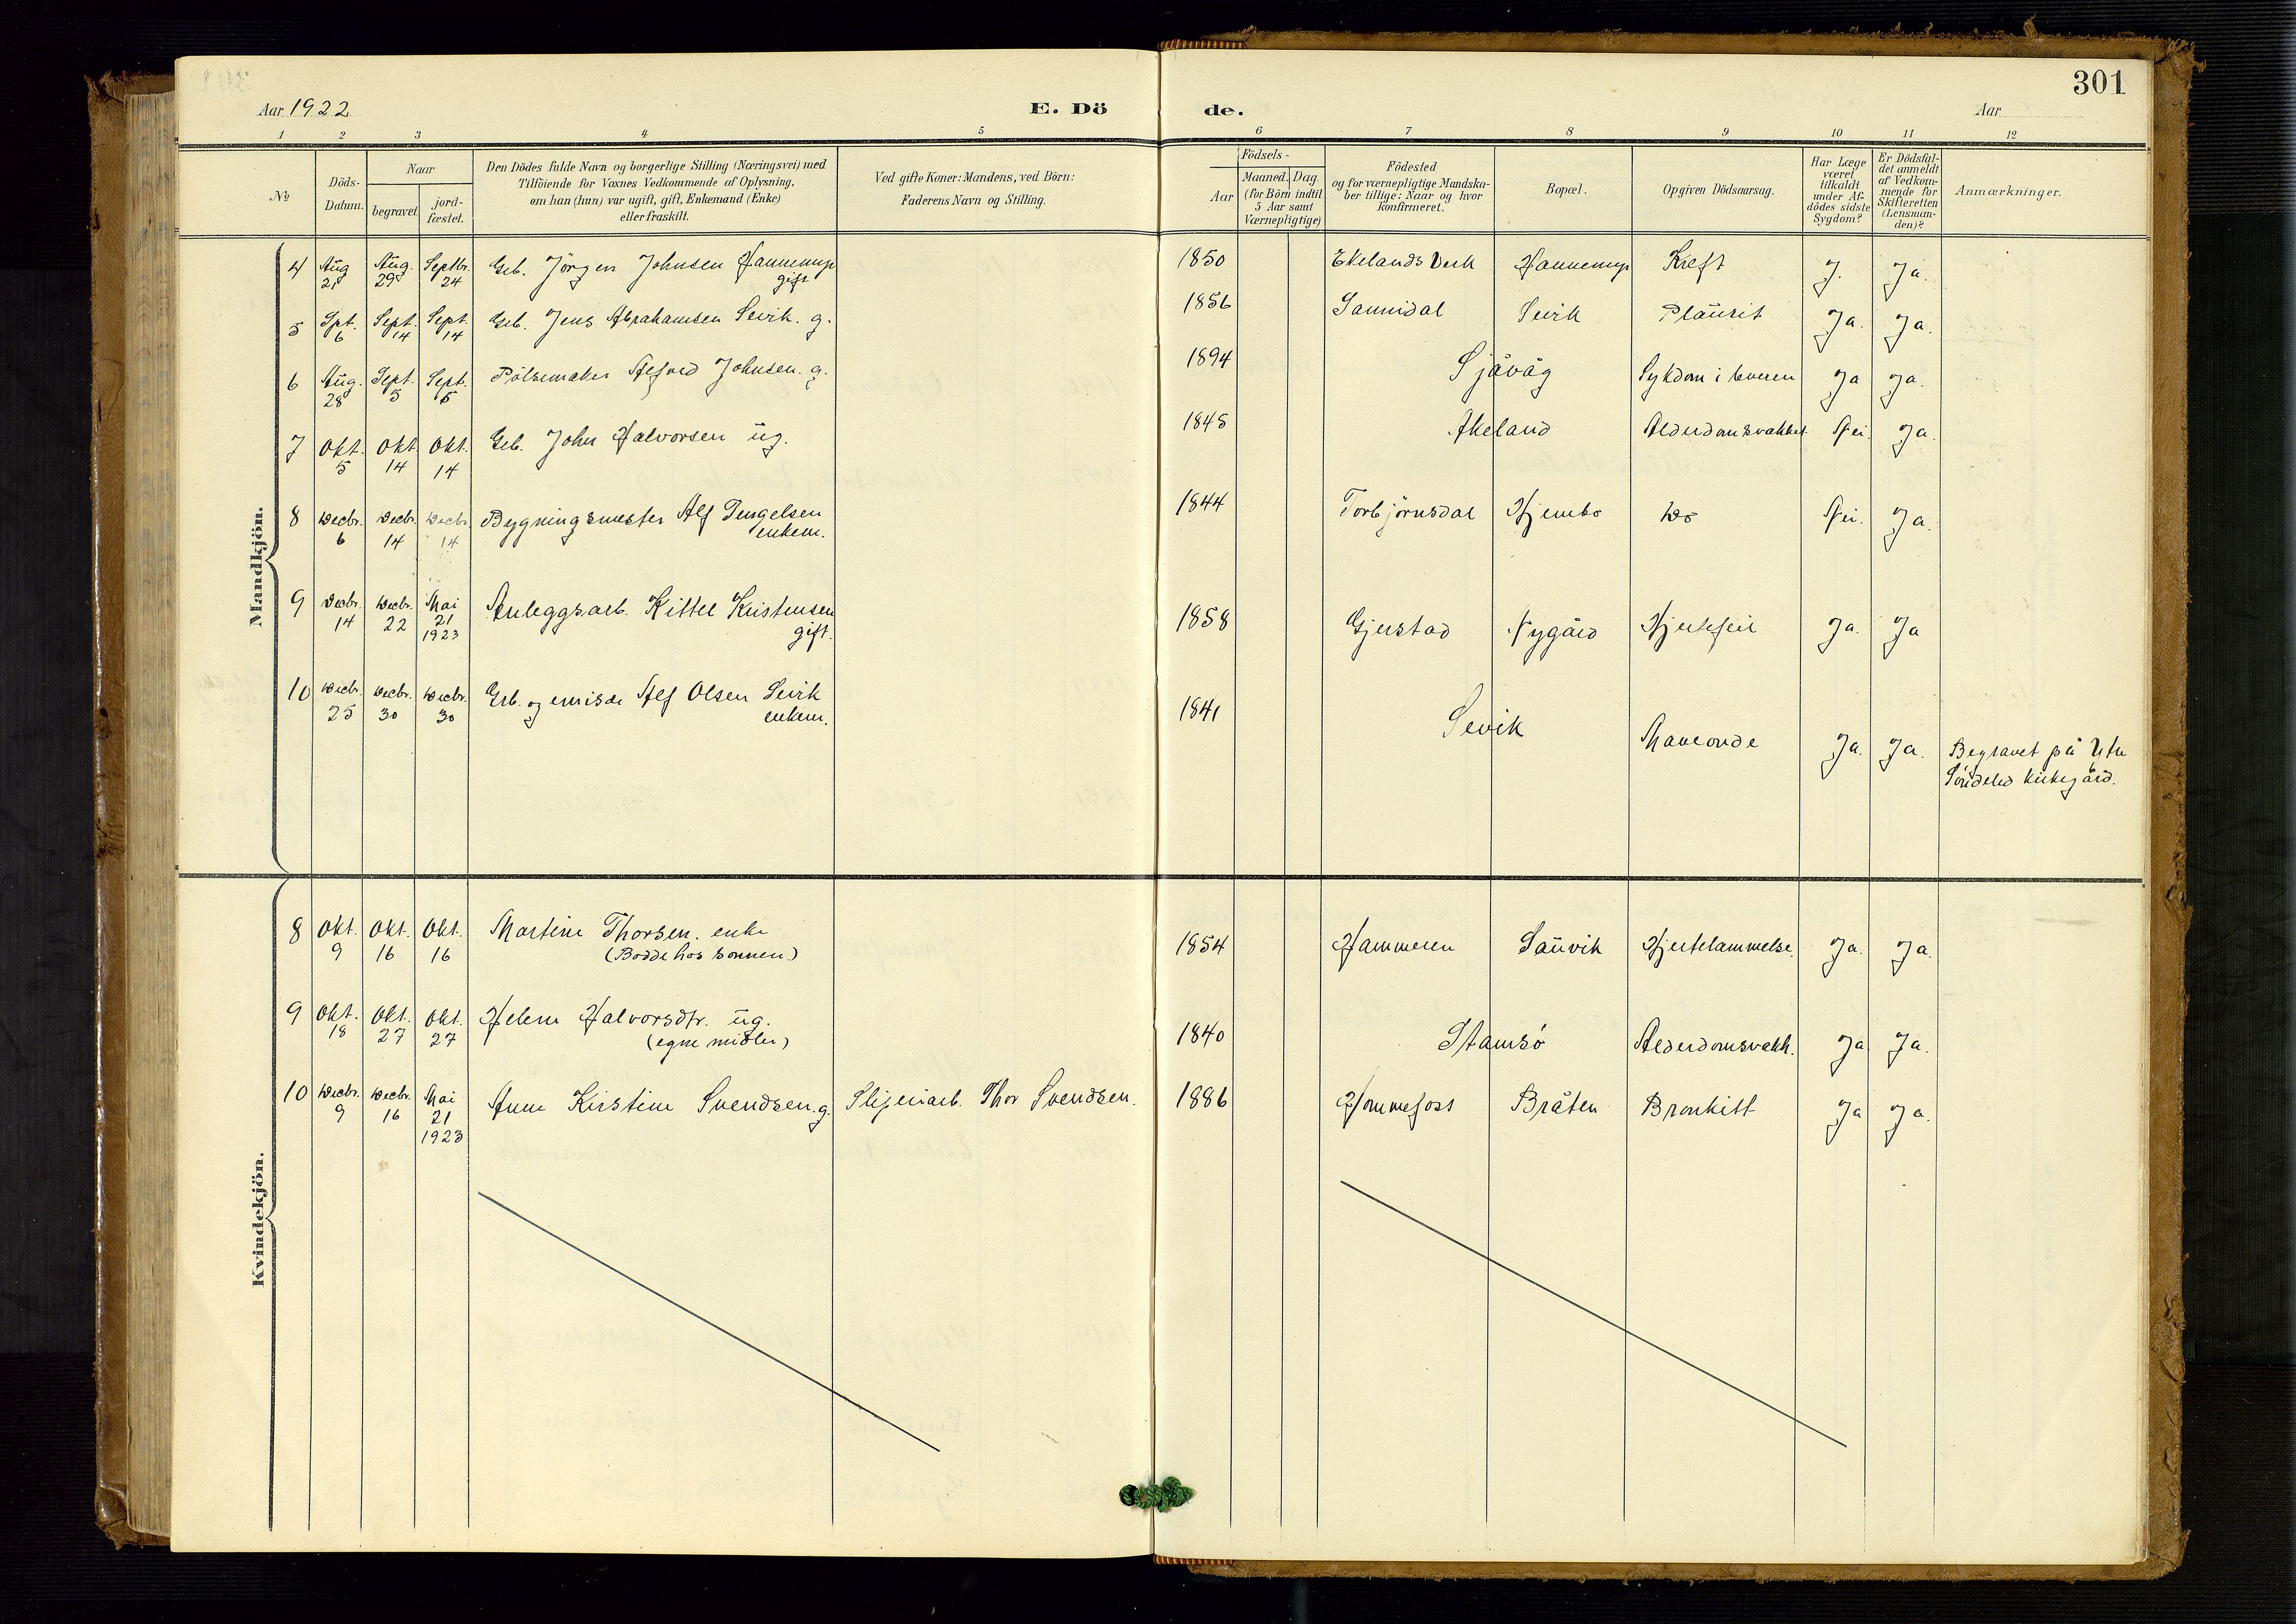 301
Aar 1922
E. Dö
de.
Aar
1 2 3 4 5 6 7 8 9 10 11 12
No
Döds-Datum.
Naar
begravet
jord-fæstet.
Den Dödes fulde Navn og borgerlige Stilling (Næringsvei) med
Tilföiende for Voxnes Vedkommende af Oplysning,
om han (hun) var ugift, gift, Enkemand (Enke)
eller fraskilt.
Ved gifte Koner: Mandens, ved Börn:
Faderens Navn og Stilling.
Födsels-
Aar
Maaned. Dag.
(for Börn indtil
5 Aar samt
Værnepligtige)
Födested
og for værnepligtige Mandska-
ber tillige: Naar og hvor
konfirmeret.
Bopæl.
Opgiven Dödsaarsag.
Har Læge
været
tilkaldt
under Af-
dödes sidste
Sygdom?
Er Dödsfal-
det anmeldt
af Vedkom-
mende for
Skifteretten
(Lensman-
den)?
Anmærkninger.
Mandkjön.
4 Aug Aug. Septbr. Geb. Jörgen Johnsen Hannemyr 1850 Ekelands Verk Hannemyr Kreft J. Ja.
21 29 24 gift
5 Spt. Sept. Sept. Geb. Jens Abrahamsen Sevik. g. 1856 Sannidal Sevik Plaurit Ja. Ja.
6 14 14
6 Aug. Sept. Sept. Pölsemaker Alfred Johnsen. g. 1894 Sjåvåg Sykdom i leveren Ja Ja.
28 5 5
7 Okt. Okt Okt. Geb. John Halvorsen ug. 1845 Akeland Alderdomsvakhet Nei. Ja.
5 14 14
8 Decbr. Decbr. Decbr. Bygningsmester Alf Tengelsen 1844 Torbjörnsdal Hjembo Do Nei. Ja.
6 14 14 enkem.
9 Decbr. Decbr. Mai Anleggsarb. Kittel Kristensen 1858 Gjerstad Nygård Hjertefeil Ja. Ja
14 22 21 gift.
1923
10 Decbr. Decbr. Decbr. Geb. og emisær Alf Olsen Sevik 1841 Sevik Maveonde Ja. Ja.
25 30 30 enkem.
Begravet på Ytre
Söndeled kirkegård.
Kvindekjön.
8 Okt. Okt. Okt. Martine Thorsen. enke 1854 Hammeren Sauvik Hjertelammelse. Ja. Ja.
9 16 16 (Bodde hos sönnen.)
9 Okt. Okt. Okt. Helene Halvorsdtr. ug. 1840 Stamsö Alderdomsvakh. Ja Ja.
18 27 27 (egne midler)
10 Decbr. Decbr. Mai Anne Kirstine Svendsen. g. Sliperiarb. Thor Svendsen. 1886 Hommefoss Bråten Bronkitt Ja Ja.
9 16 21
1923